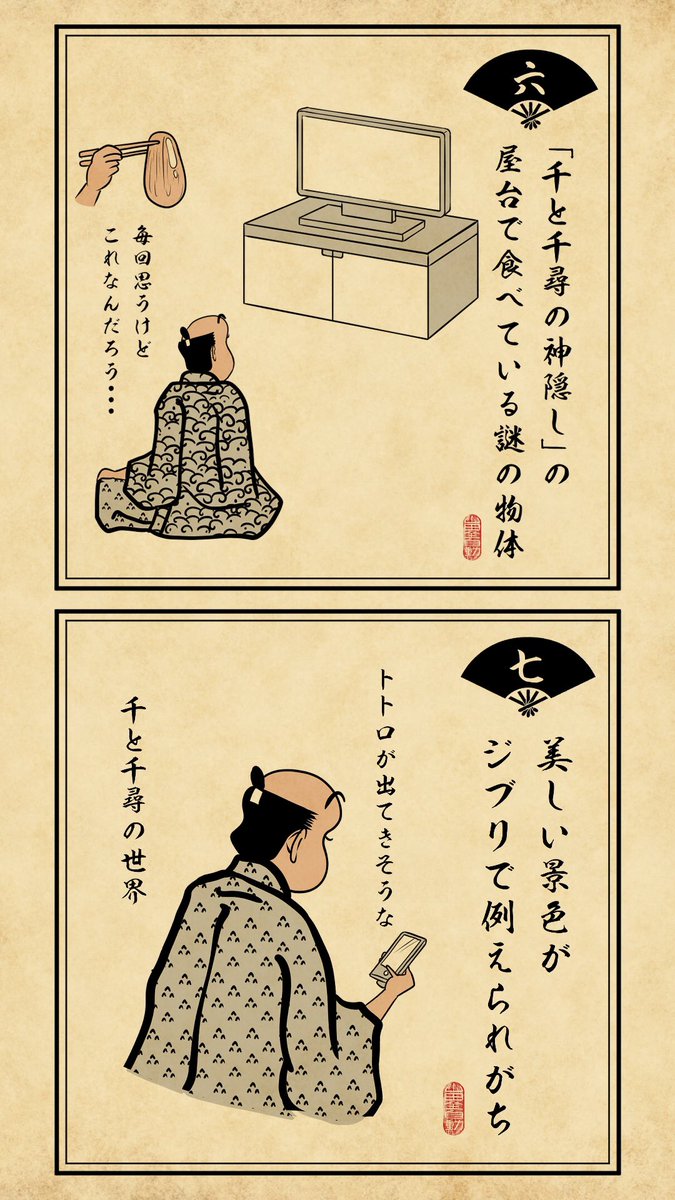 六
「千と千尋の神隠し」の
屋台で食べている謎の物体
毎回思うけど
これなんだろう・・・
七
美しい景色が
ジブリで例えられがち
トトロが出てきそうな
千と千尋の世界